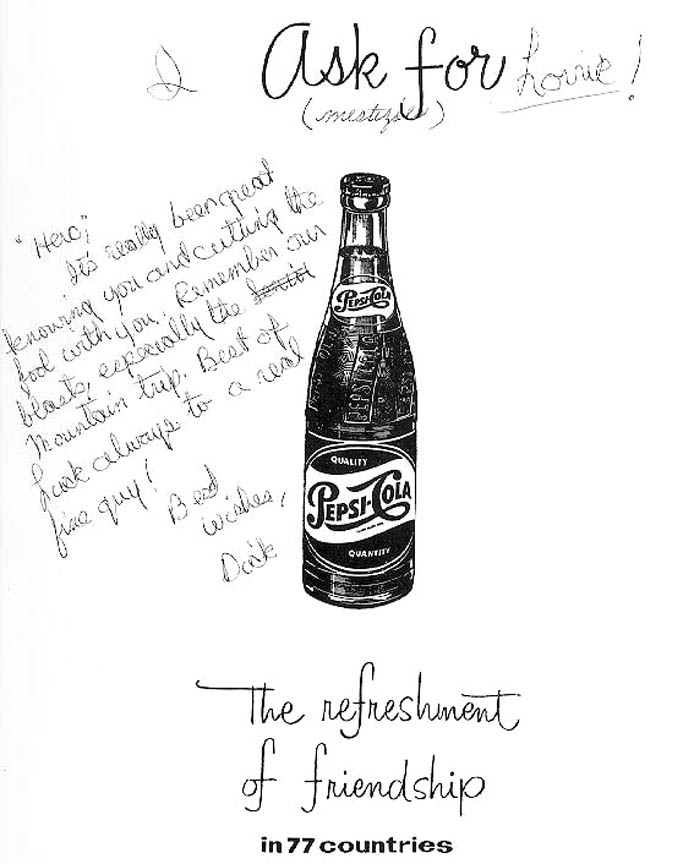 I Ask for Lorrie!
(mestizos)
"Hero,"
It's really been great
knowing you and cutting the
fool with you. Remember our
blasts, especially the
Mountain trip. Best of
Luck always to a real
fine guy!
Best
wishes,
Dick
PEPSI-COLA
QUALITY
PEPSI-COLA
QUANTITY
The refreshment
of friendship
in 77 countries